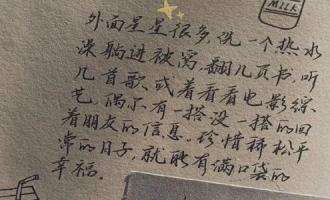 MILK
外面星星很多，洗一个热水
澡躺进被窝，翻几页书，听
几首歌，或着看看电影综
艺，偶尔有一搭没一搭的回
着朋友的信息。珍惜稀松平
常的日子，就能有满口袋的
幸福。